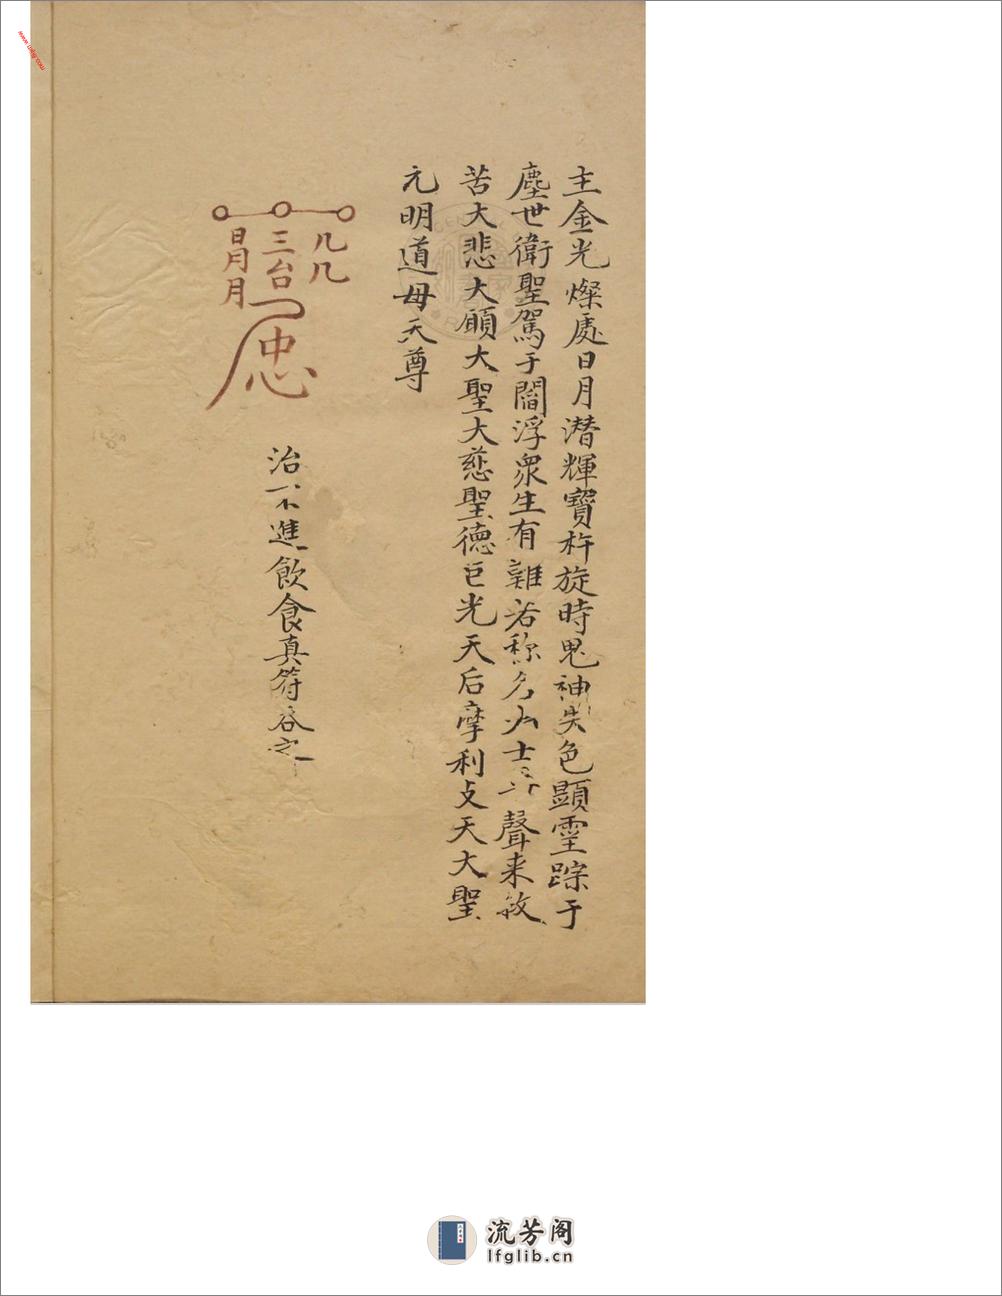 主金光燦處日月潛輝寶杵旋時鬼神失色顯靈踪于
塵世衛聖駕于閻浮衆生有難若称名大士尋聲来救
苦大悲大願大聖大慈聖德巨光天后摩利攴天大聖
元明道母天尊
几几
三台
日月月
忠
治不進飲食真符吞之
流芳阁
lfglib.cn